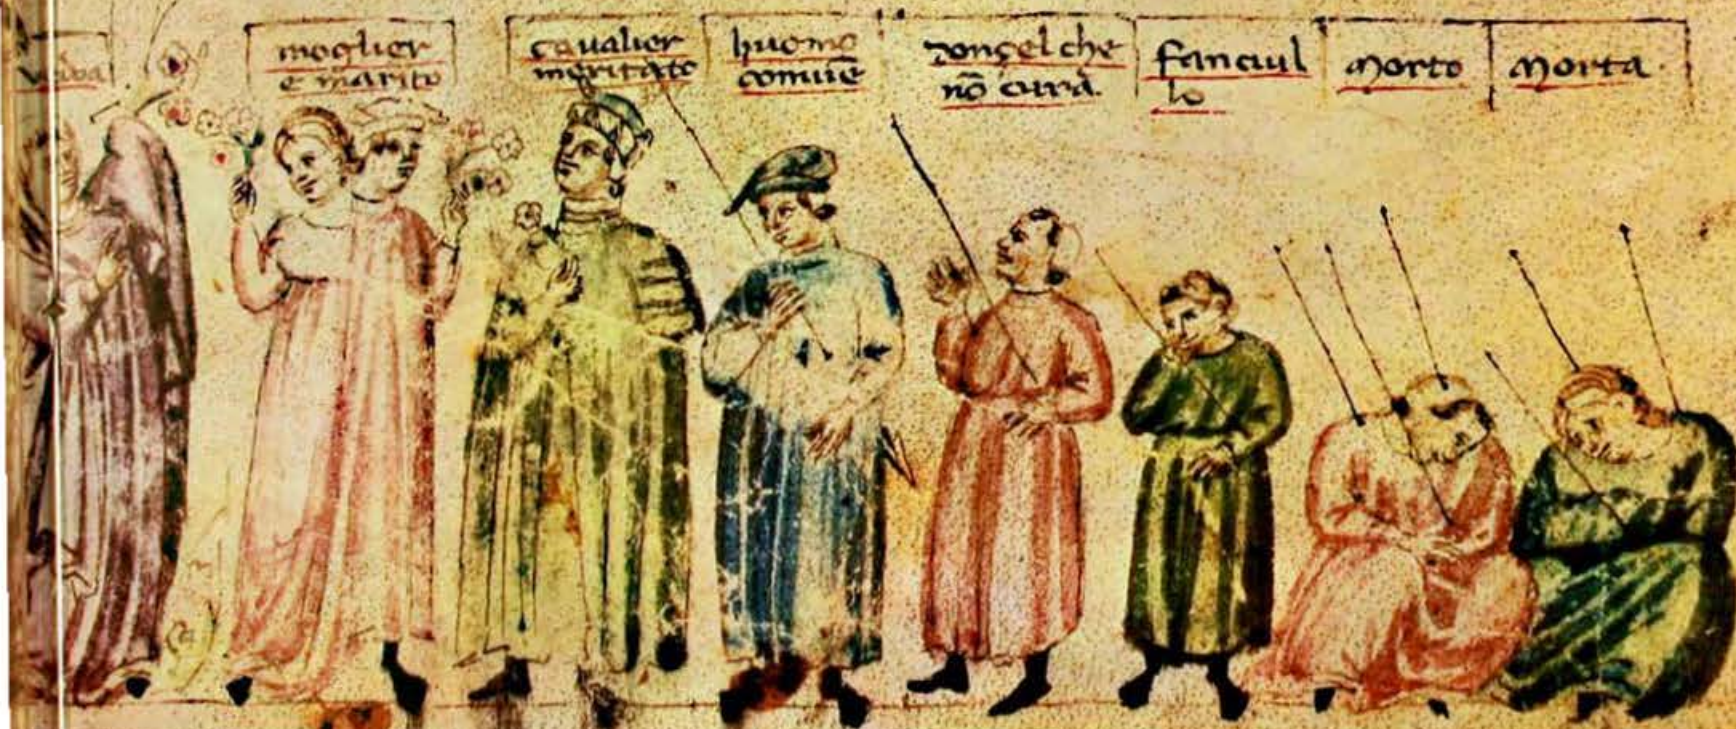 moglier
e marito
cavalier
meritato
huomo
comūe
donçel che
nō cura.
fanciul
lo
Morto
Morta.